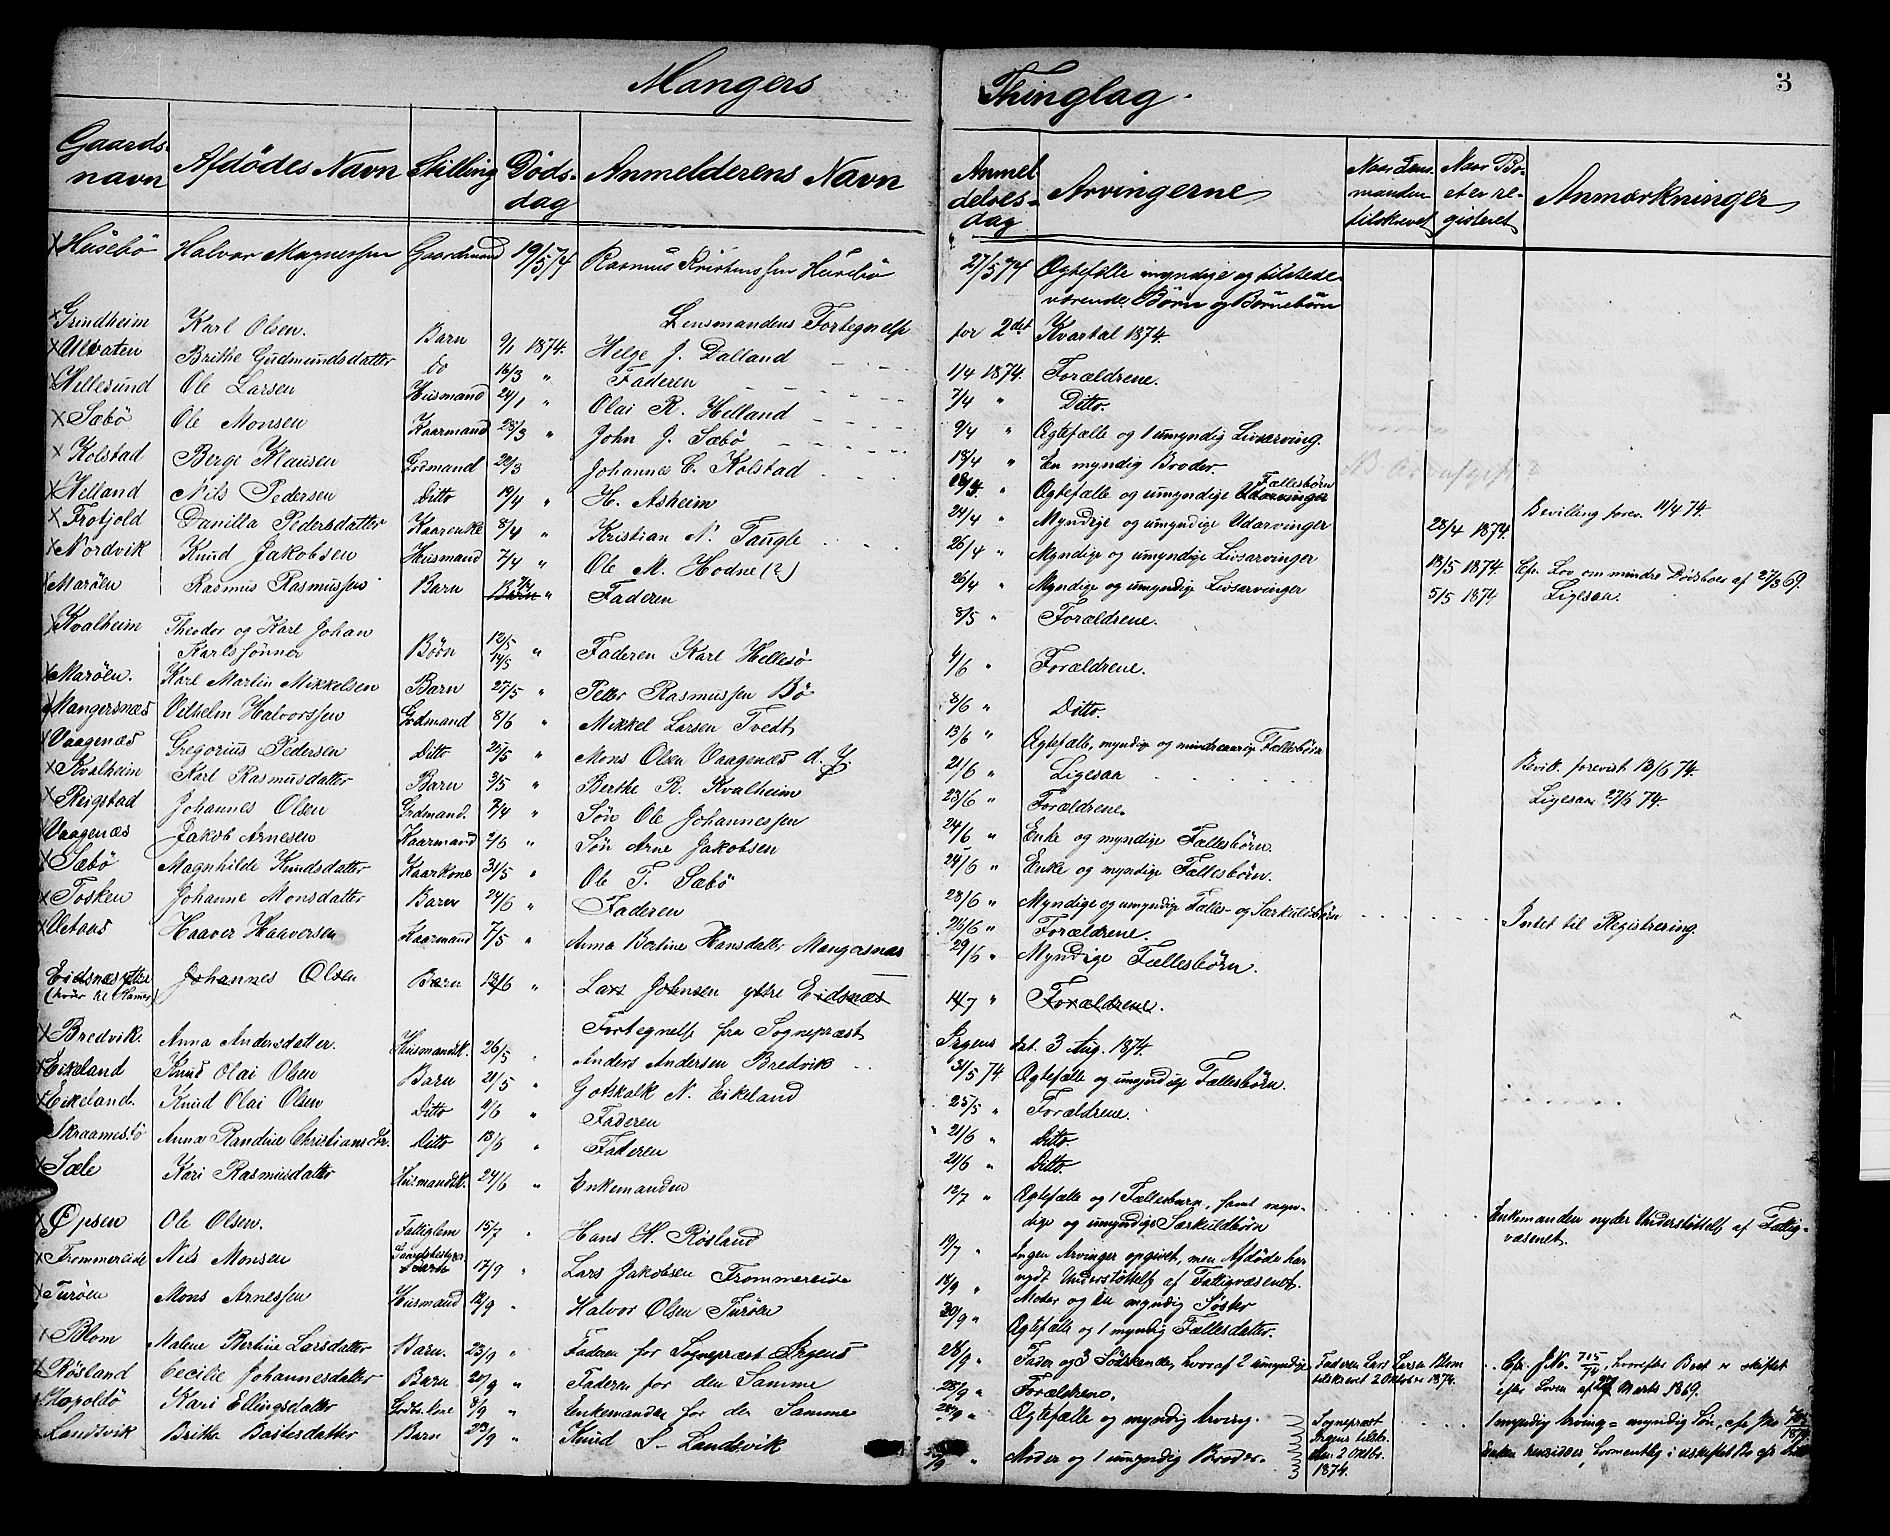 Mangers Thinglag.
3
Gaards-navn Afdödes Navn Stilling Döds-dag Anmelderens Navn Anmeldelses-dag Arvingerne Naar Lensmanden tilskrevet Naar Boet er registeret Anmærkninger
x Husebö Halvor Magnessen Gaardmand 19/5 74 Rasmus Kristenssen Husebö 27/5 74 Ægtefelle myndige og tilstede-
værende Börn og Börnebörn
Lensmandens Fortegnelse for 2det Kvartal 1874.
x Grindheim Karl Olsen. Barn 9/1 1874. Helge J. Dalland 1/4 1874. Forældrene.
x Alvaten Brithe Gudmundsdatter do 16/3 " Faderen 7/4 " Ditto.
x Hellesund Ole Larsen Husmand 24/1 " Olai R. Helland 9/4 " Ægtefælle og 1 umyndig Livsarving.
x Sæbö Ole Monsen Kaarmand 28/3 " John J. Sæbö 18/4 " En myndig Broder.
x Kolstad Berge Klausen Grdmand 29/3 Johannes C. Kolstad " Ægtefælle og umyndige Fællesbörn
x Helland Nils Pedersen Ditto 19/4 " H. Asheim 24/4 " Myndige og umyndige Udarvinger Bevilling forev. 11/4 74.
x Trotjold Danilla Pedersdatter Kaarenke 8/4 " Kristian N. Tangle 26/4 " Myndige og umyndige Livsarvinger 28/4 1874.
x Nordvik Knud Jakobsen Husmand 7/4 " Ole M. Hodne (?) 26/4 " Myndige og umyndige Livsarvinger 13/5 1874. Cfr. Lov om mindre Dödsboer af 27/3 69.
x Maröen Rasmus Rasmussen Barn " Faderen 8/5 " Forældrene. 5/5 1874 Ligesaa.
x Kvalheim Theodor og Karl Johan
Karlssönner Börn 13/5 14/5 " Faderen Karl Hellesö 4/6 " Forældrene.
x Maröen. Karl Martin Mikkelsen Barn 27/5 " Petter Rasmussen Bö 8/6 " Ditto.
x Mangersnæs Vilhelm Halvorssen Grdmand 8/6 " Mikkel Larsen Tvedt 13/6 " Ægtefælle, myndig og mindreaarige Fællesbörn
x Vaagenæs Gregorius Pedersen Ditto 25/5 " Mons Olsen Vaagenæs d. Y. 21/6 " Ligesaa Bevill. forevist 13/6 74.
x Kvalheim Karl Rasmusdatter Barn 3/5 " Berthe R. Kvalheim 23/6 " Forældrene. Ligesaa 27/6 74.
x Reigstad Johannes Olsen Grdmand. 7/4 " Sön Ole Johannessen 24/6 " Enke og myndige Fællesbörn.
x Vaagenæs Jakob Arnesen Kaarmand 2/6 " Sön Arne Jakobsen 24/6 " Enke og myndige Fællesbörn.
x Sæbö Magnhilde Knudsdatter Kaarkone 31/5 " Ole T. Sæbö 23/6 " Myndige og umyndige Fælles- og Særkuldsbörn Intet til Registrering.
x Tosken Johanne Monsdatter Barn 24/6 " Faderen 25/6 " Forældrene.
x Vetaas Haaver Haaversen Kaarmand 7/5 " Anna Bertine Hansdatter Mangersnæs 29/6 " Myndige Fællesbörn.
Eidsnæs ytre
(hörer til Hamer) Johannes Olsen Barn 13/6 " Lars Johnsen ytre Eidsnæs 14/7 " Forældrene.
Fortegnelse fra Sognepræst Irgens dat. 3 Aug. 1874.
x Bredvik. Anna Andersdatter. Husmandsk. 26/5 " Anders Andersen Bredvik 31/5 74 Ægtefælle og umyndige Fællesbörn.
x Eikeland Knud Olai Olsen Barn 21/5 " Gotskalk N. Eikeland 25/5 " Forældrene.
x Eikeland. Knud Olai Olsen Ditto 9/6 " Faderen 21/6 " Ditto.
Skraamestö Anna Randine Christiansdtr. Ditto 13/6 " Faderen 21/6 " Ditto.
x Sæle Kari Rasmusdatter Husmandsk. 24/6 " Enkemanden 12/7 " Ægtefælle og 1 Fællesbarn, samt myn-
dige og umyndige Særkuldbörn Enkemanden nyder Understöttelse af Fattig-
væsenet.
x Opsen Ole Olsen. Fattiglem 15/7 " Hans H. Rösland 19/7 " Ingen Arvinger opgivet, men Afdöde har
nydt Understöttelse af Fattigvæsenet.
x Frommereide Nils Monsen 17/9 " Lars Jakobsen Frommereide 18/9 " Moder og en myndig Söster
x Turöen Mons Arnessen Husmand 12/9 " Halvor Olsen Turöen 20/9 " Ægtefælle og 1 myndig Fællesdatter.
x Blom Malene Bertine Larsdatter Barn. 23/9 " Faderen for Sognepræst Irgens 28/9 " Fader og 3 Södskende, hvoraf 2 umyndige Faderen Lars Larsen Blom
tilskrevet 2 Oktober 1874. Cfr. J.No. 715/74, hvorefter Boet er skiftet
efter Loven af 27 Marts 1869.
x Rösland Cecilie Johannesdatter Barn 20/9 " Faderen for den Samme 28/9 " Forældrene.
x Hopoldö Kari Ellingsdatter Grdm.kone 8/9 " Enkemanden for den Samme 28/9 " Ægtefælle og myndig Arving. Sognepræst
Irgens tilskr.
den 2 Oktbr.
1874. 1 myndig Arving = myndig Sön, cfr No
x Landsvik Brithe Bastesdatter Barn 23/9 " Knud S. Landsvik " Moder og 1 umyndig Broder.